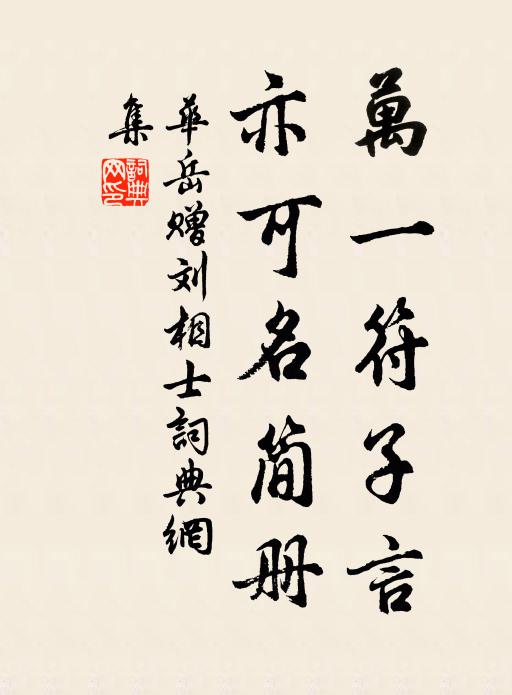 萬一符子言
亦可名簡册
華岳赠刘相士詞典網
集
詞典網印